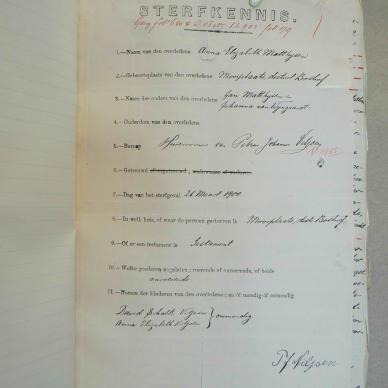 STERFKENNIS.
1.—Naam van den overledene Anna Elizabeth Matthysen
2.—Geboorteplaats van den overledene Mooiplaats, district Boshof
3.—Namen der ouders van den overledene Jan Matthysen en
Johanna
4.—Ouderdom van den overledene
5.—Beroep Huisvrouw van Petrus Johannes Viljoen
6.—Getrouwd ongetrouwd; weduwnaar of weduwe
7.—Dag van het sterfgeval 26 Maart 1900
8.—In welk huis, of waar de persoon gestorven is Mooiplaats, distr Boshof
9.—Of er een testament is Testament
10.—Welke goederen nagelaten; roerende of onroerende, of beide
onroerende
11.—Namen der kinderen van den overledene; en òf mondig òf onmondig
David Schalk Viljoen
Anna Elizabeth Viljoen } onmondig
Viljoen